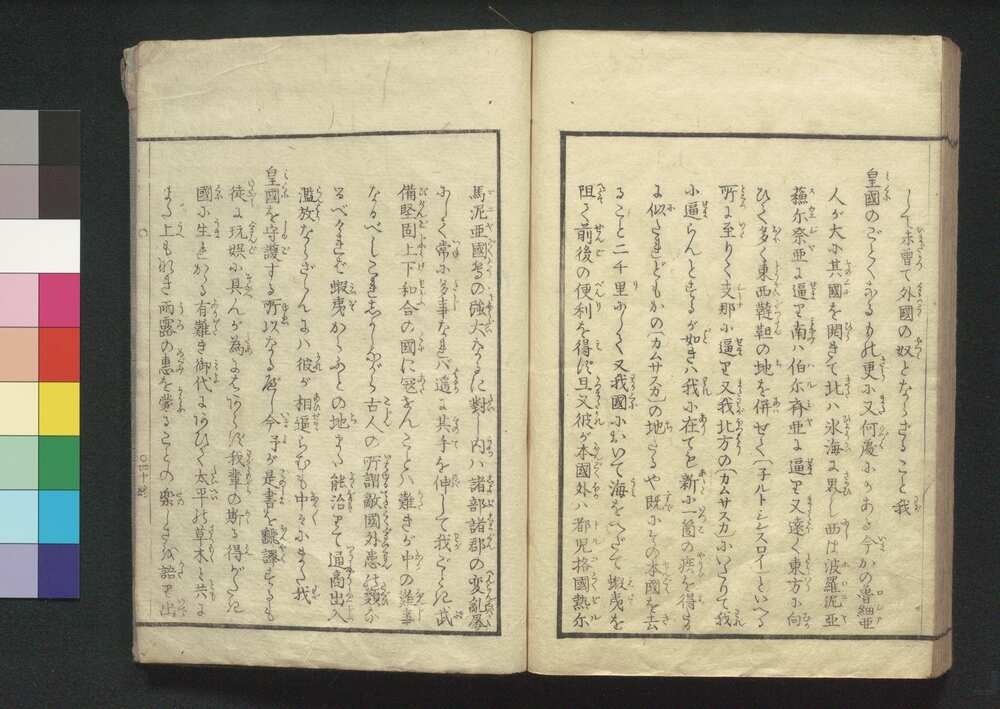 して未曽て外国の奴とならざること我
皇國のごとくなるもの更に又何慶にかある今かの魯細亜
人が大に其國を開きて北ハ氷海に界し西は波羅泥亜
蘓尓祭亜に逼り南ハ伯尓斉亜に逼り又遠く東方に向
ひて多く東西韃靼の地を併せて（子ルトシンスコイ）といへる
所に至りて支那に逼り又我北方の（カムサスカ）にいたりて我
に逼らんとするが如きハ我に在てを新に一箇の疾を得る
に似たれどもかの（カムサスカ）の地たるや既にその本國を去
ること二千里にして又我國において海をへだて蝦夷を
阻て前後の便利を得ず且又彼が本國外ハ都児格國熱尓
馬泥亜國等の強大なるに對し内ハ諸部諸郡の変乱
にして常に多事なれバ遠に其手を伸して我ごとき武
備堅固上下和合の國に冦せんことハ難きが中の難事
なるべしこれ志かしながら古人の所謂敵國外患の類に
るべければ蝦夷からふとの地また能治りて通商出入
濫放ならざらんにハ彼が相逼らむも中々にまた我
皇國を守護する所以なるべし今予が是書を飜譯するも
徒に玩娯に具んが為にあらず我輩の斯る得がたき
國に生れかゝる有難き御代にあひて太平の草木と共に
また上もなき雨露の惠を蒙ることの楽しさを語り出